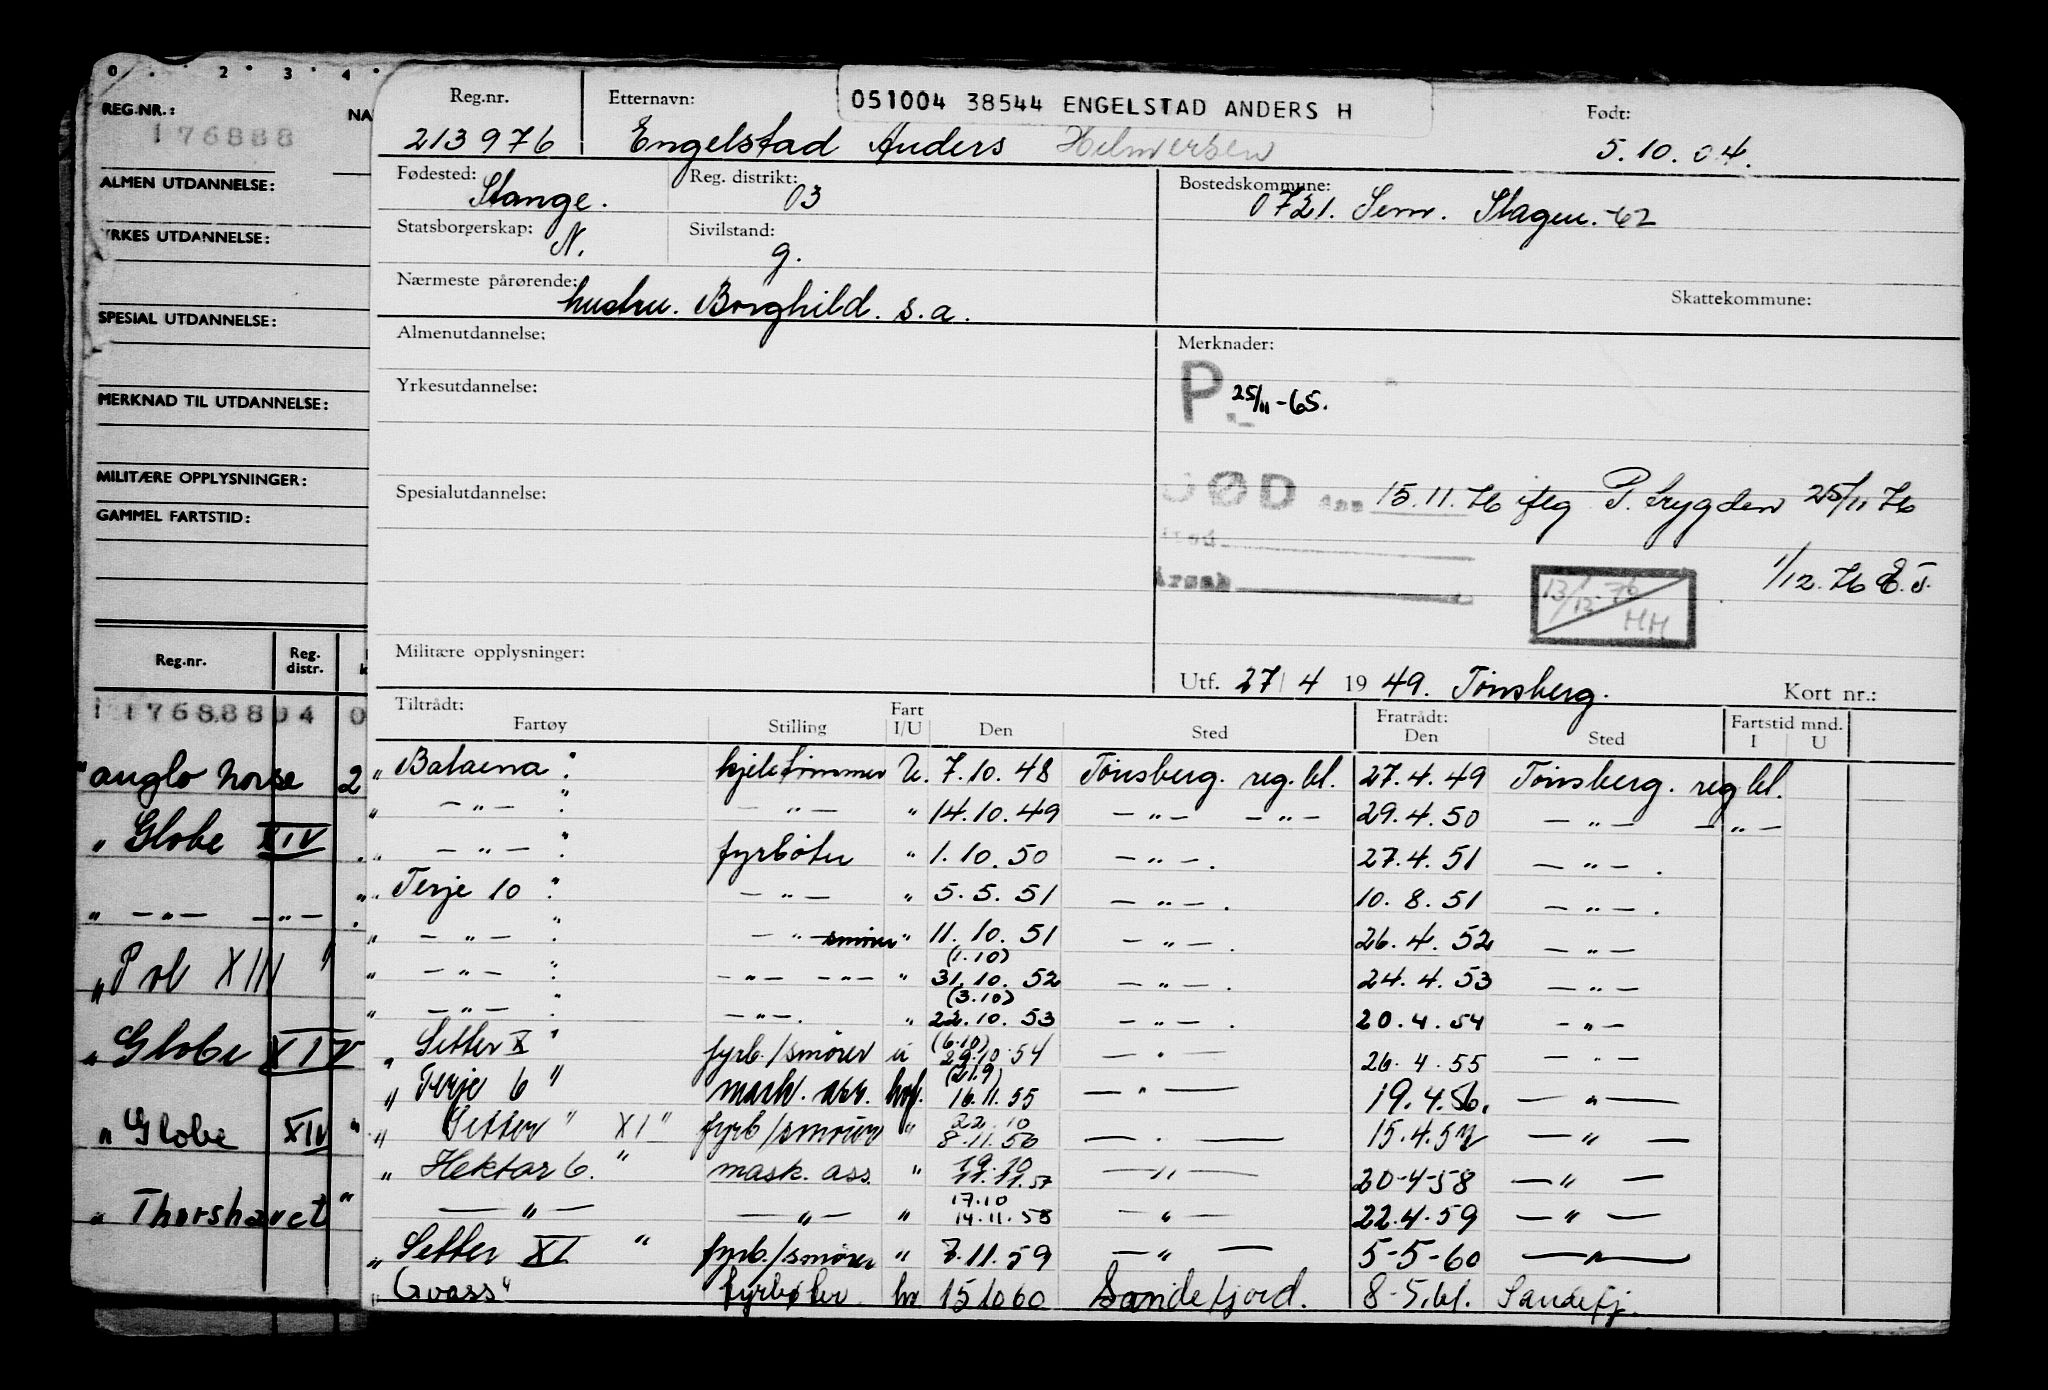 0 . 2 . 3 . 4 .
REG.NR.: NA
176888
ALMEN UTDANNELSE:
YRKES UTDANNELSE:
SPESIAL UTDANNELSE:
MERKNAD TIL UTDANNELSE:
MILITÆRE OPPLYSNINGER:
GAMMEL FARTSTID:
Reg.nr. Reg. distr.
"anglo norse 2
" Globe XIV
" — " — — " —
" Pol XIII "
" Globe XIV
" Globe XIV "
" Thorshavet "
051004 38544 ENGELSTAD ANDERS H
Reg.nr. Etternavn: Født:
213976 Engelstad Anders Helmersen 5.10.04.
Fødested: Stange. Reg. distrikt: 03 Bostedskommune: 0721. Sem. Slagen. -62
Statsborgerskap: N. Sivilstand: g.
Nærmeste pårørende: hustru. Borghild. s.a. Skattekommune:
Almenutdannelse: Merknader:
Yrkesutdannelse: P. 25/11-65.
Spesialutdannelse: DØD den 15.11.76 iflg P. trygden 25/11 76
1/12.76 E.T.
13/12-76 HH
Militære opplysninger:
Utf. 27/4 1949. Tønsberg. Kort nr.:
Tiltrådt: Fart Fratrådt: Fartstid mnd.
Fartøy Stilling I/U Den Sted Den Sted I U
" Balaena " kjeletrimmer U. 7.10.48 Tønsberg. reg.bl. 27.4.49 Tønsberg. reg bl.
" — " — " — " — " 14.10.49 — " — — " — 29.4.50 — " — — " —
" — " — " fyrbøter " 1.10.50 — " — . 27.4.51 — " — .
" Terje 10 " — " — " 5.5.51 — " — . 10.8.51 — " — .
" — " — " — " — smører " 11.10.51 — " — . 26.4.52 — " —
" — " — " — " — — " — " (1.10) 31.10.52 — " — . 24.4.53 — " —
" — " — " — " — . " (3.10) 22.10.53 — " — . 20.4.54 — " —
" Setter X " fyrb./smører u (6.10) 29.10.54 — " — 26.4.55 — " —
" Terje 6 " mask. ass. hvf. (21.9) 16.11.55 — " — 19.4.56. — " —
" Setter " XI " fyrb/smører " 22.10 8.11.56 — " — 15.4.57 — " —
" Hektor 6. " mask. ass. " 19.10 11.11.57 — " — 20-4-58 — " —
— " — — " — " 17.10 14.11.58 — " — 22.4.59 — " —
" Setter XI " fyrb./smører " 7.11.59 — " — 5-5-60 — " —
" Gvass " fyrbøter hv 15 10 60 Sandefjord. 8-5.61. Sandefj.